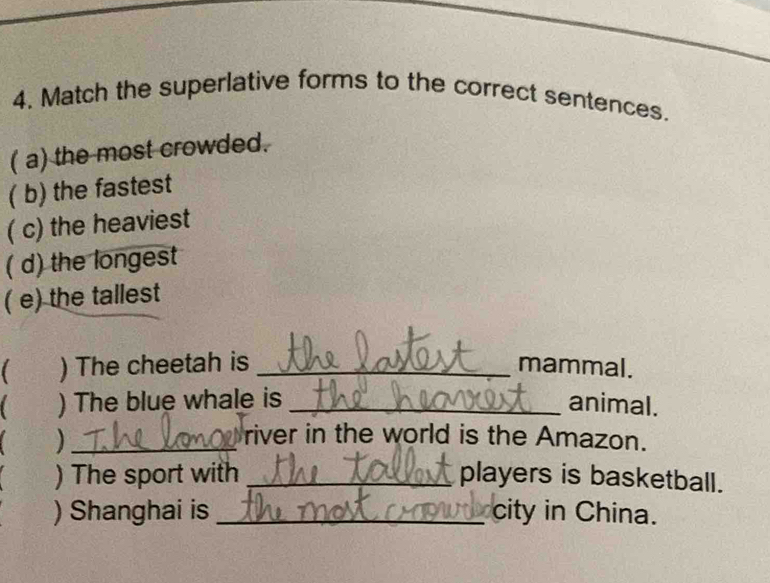 4. Match the superlative forms to the correct sentences.
( a) the most crowded.
( b) the fastest
( c) the heaviest
( d) the longest
( e) the tallest
( ) The cheetah is the fastest mammal.
( ) The blue whale is the heaviest animal.
( ) The longest river in the world is the Amazon.
( ) The sport with the tallest players is basketball.
( ) Shanghai is the most crowded city in China.